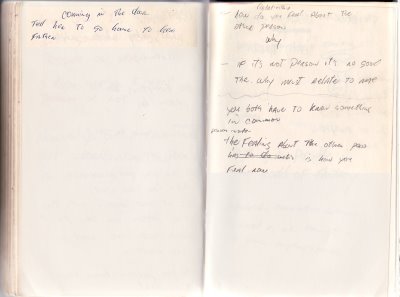 Coming in the door
Tell her to go home to her
Father
Relationship
how do you feel about the
other person
why
— if it's not person it's no good
The why must relate to
you both have to know something
in common
The Feeling About The other person
has to do with is how you
Feel now